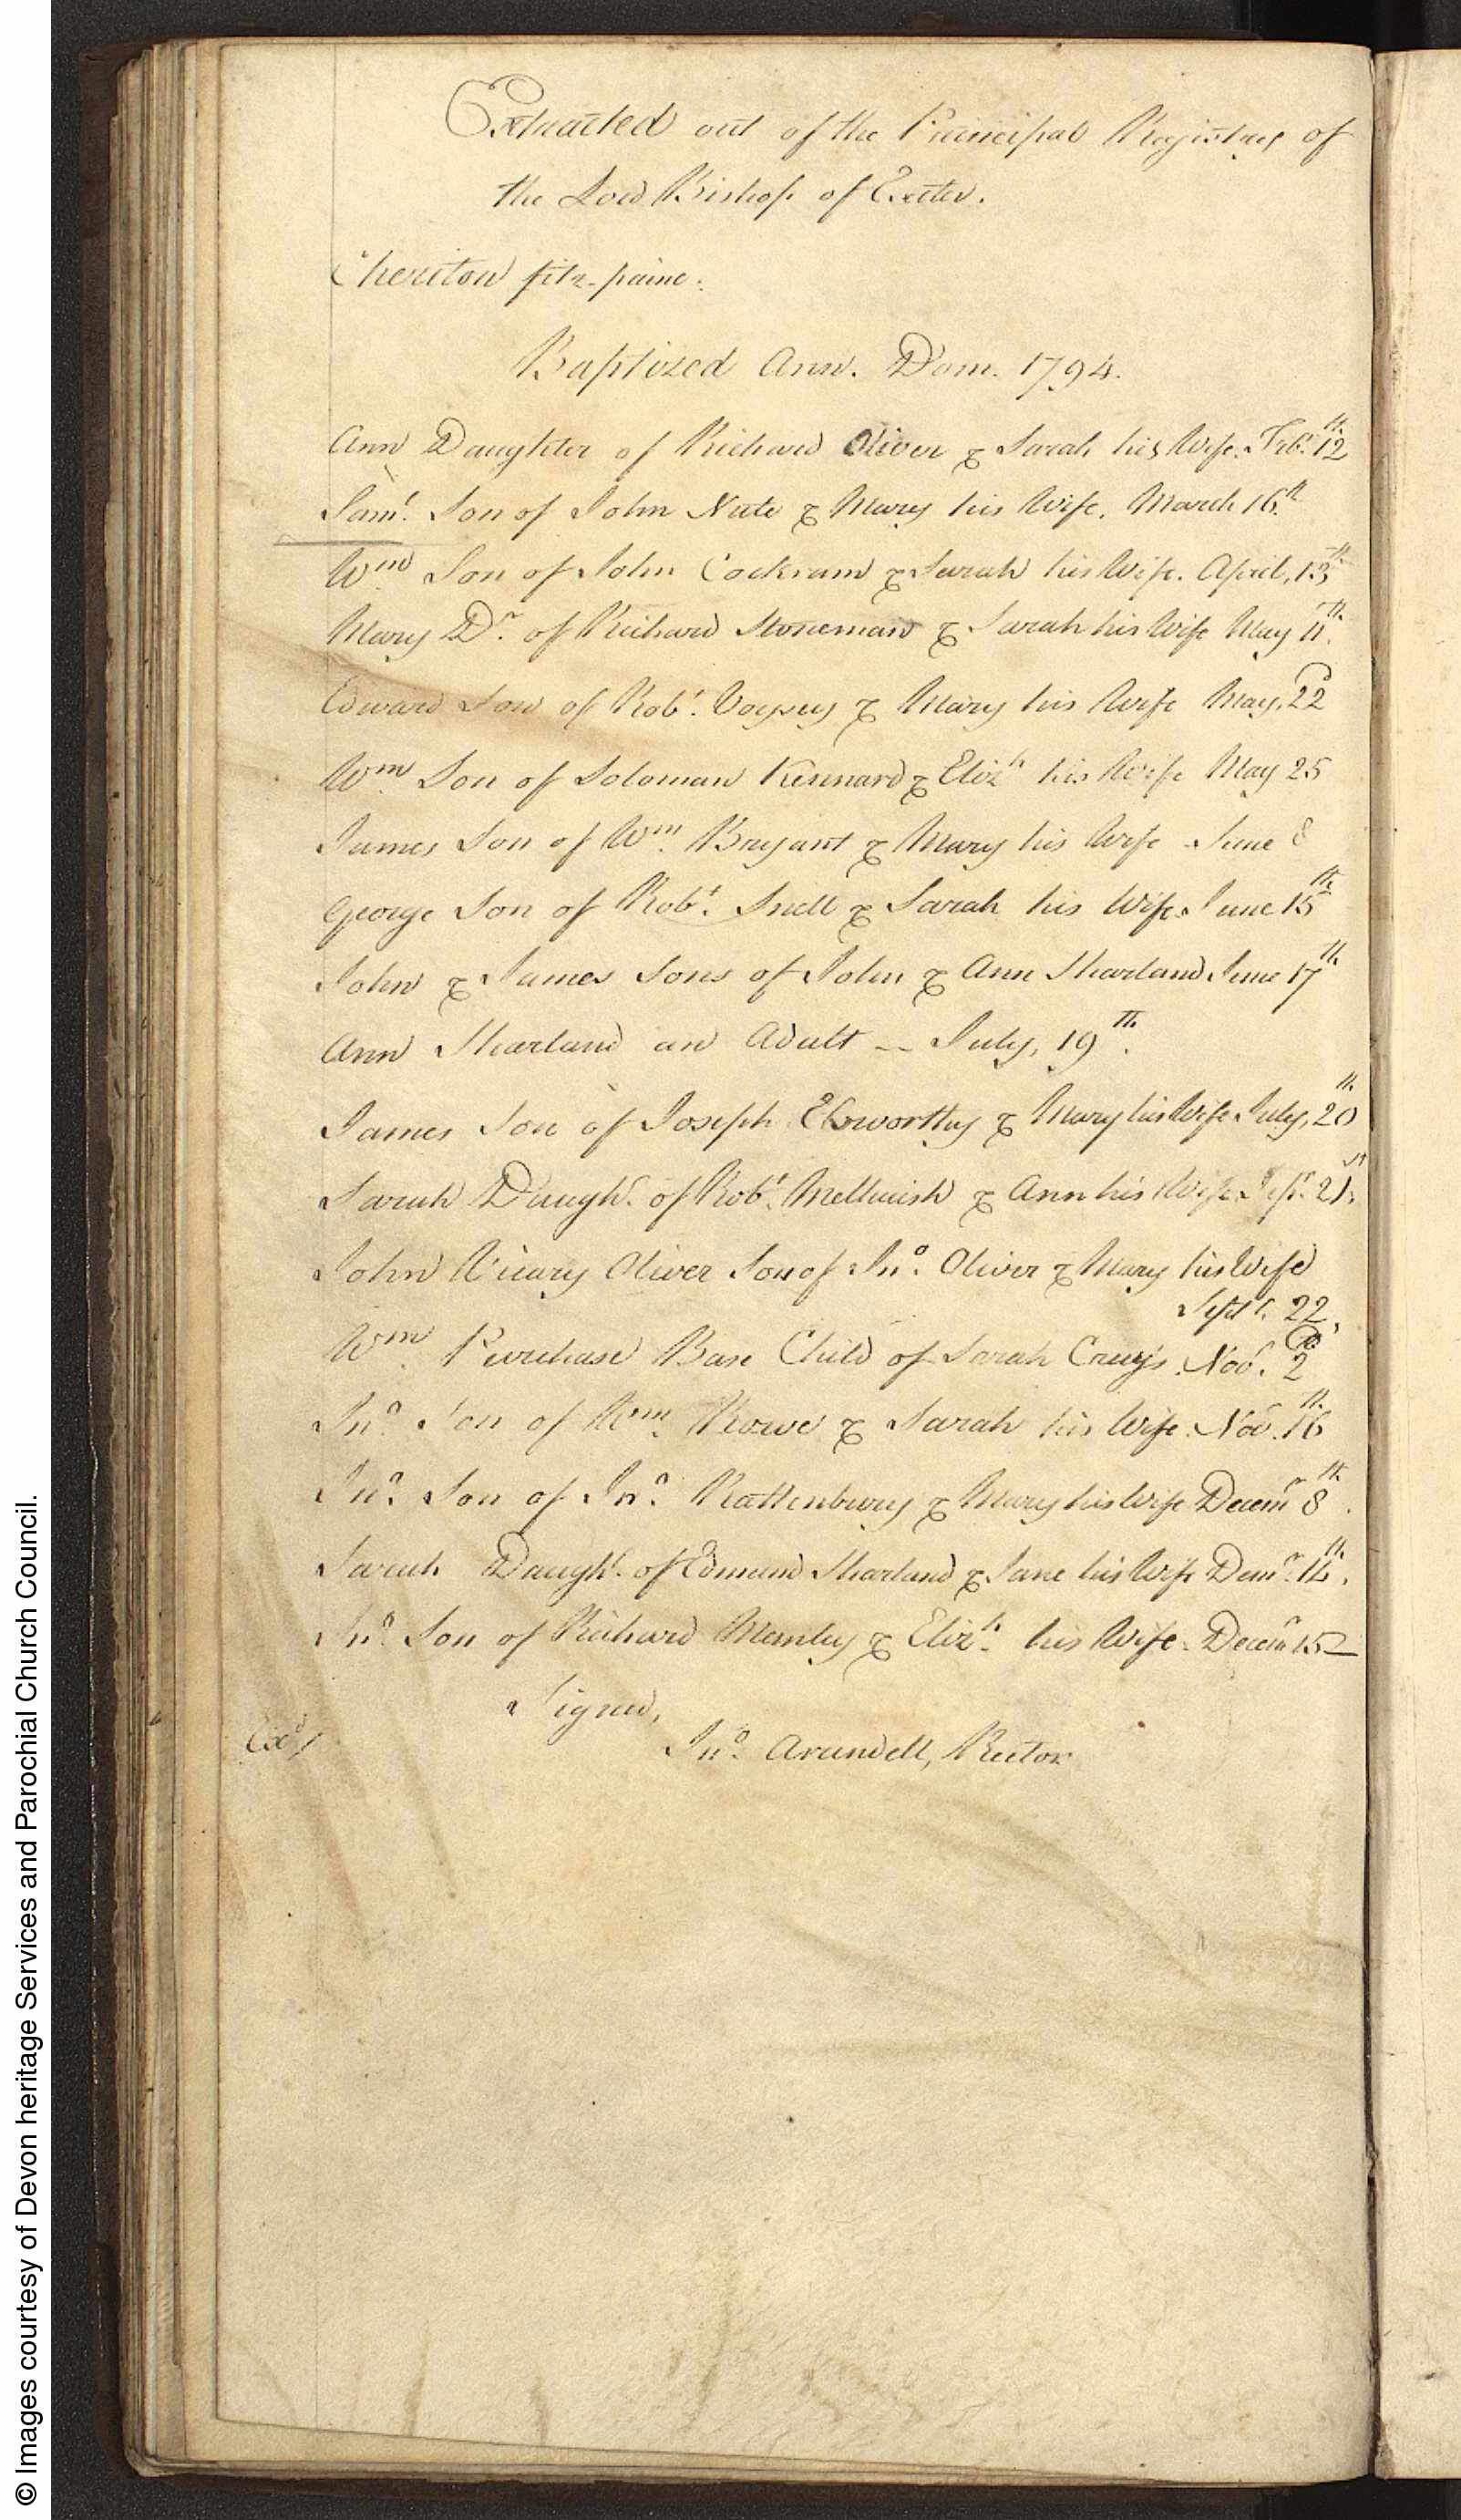 Extracted out of the Principal Registry of
the Lord Bishop of Exeter.
Cheriton fitz-paine.
Baptized Ann. Dom. 1794.
Ann Daughter of Richard Oliver & Sarah his Wife. Feb. 12th
Saml. Son of John Nute & Mary his Wife. March 16th
Wm. Son of John Cockram & Sarah his Wife. April, 13th
Mary Dr. of Richard Stoneman & Sarah his Wife May 11th.
Edward Son of Robt. Voysey & Mary his Wife May, 22d
Wm. Son of Soloman Kennard & Elizh his Wife May 25
James Son of Wm. Bryant & Mary his Wife June 8
George Son of Robt. Snell & Sarah his Wife June 15th
John & James Sons of John & Ann Sharland June 17th
Ann Sharland an Adult -- July, 19th.
James Son of Joseph Elsworthy & Mary his Wife July, 20th
Sarah Daught. of Robt. Melhuish & Ann his Wife Sept. 21st.
John Vicary Oliver Son of Jno. Oliver & Mary his Wife
Septr. 22,
Wm. Purchase Base Child of Sarah Cruys. Nov. 2d
Jno. Son of Wm. Rowe & Sarah his Wife. Nov. 16th
Jno. Son of Jno. Rattenbury & Mary his Wife Decemr 8th.
Sarah Daught. of Edmund Sharland & Jane his Wife Demr. 14th.
Jno. Son of Richard Manley & Elizh. his Wife. Decemr 15
Signed,
Exd/
Jno. Arundell, Rector
© Images courtesy of Devon heritage Services and Parochial Church Council.